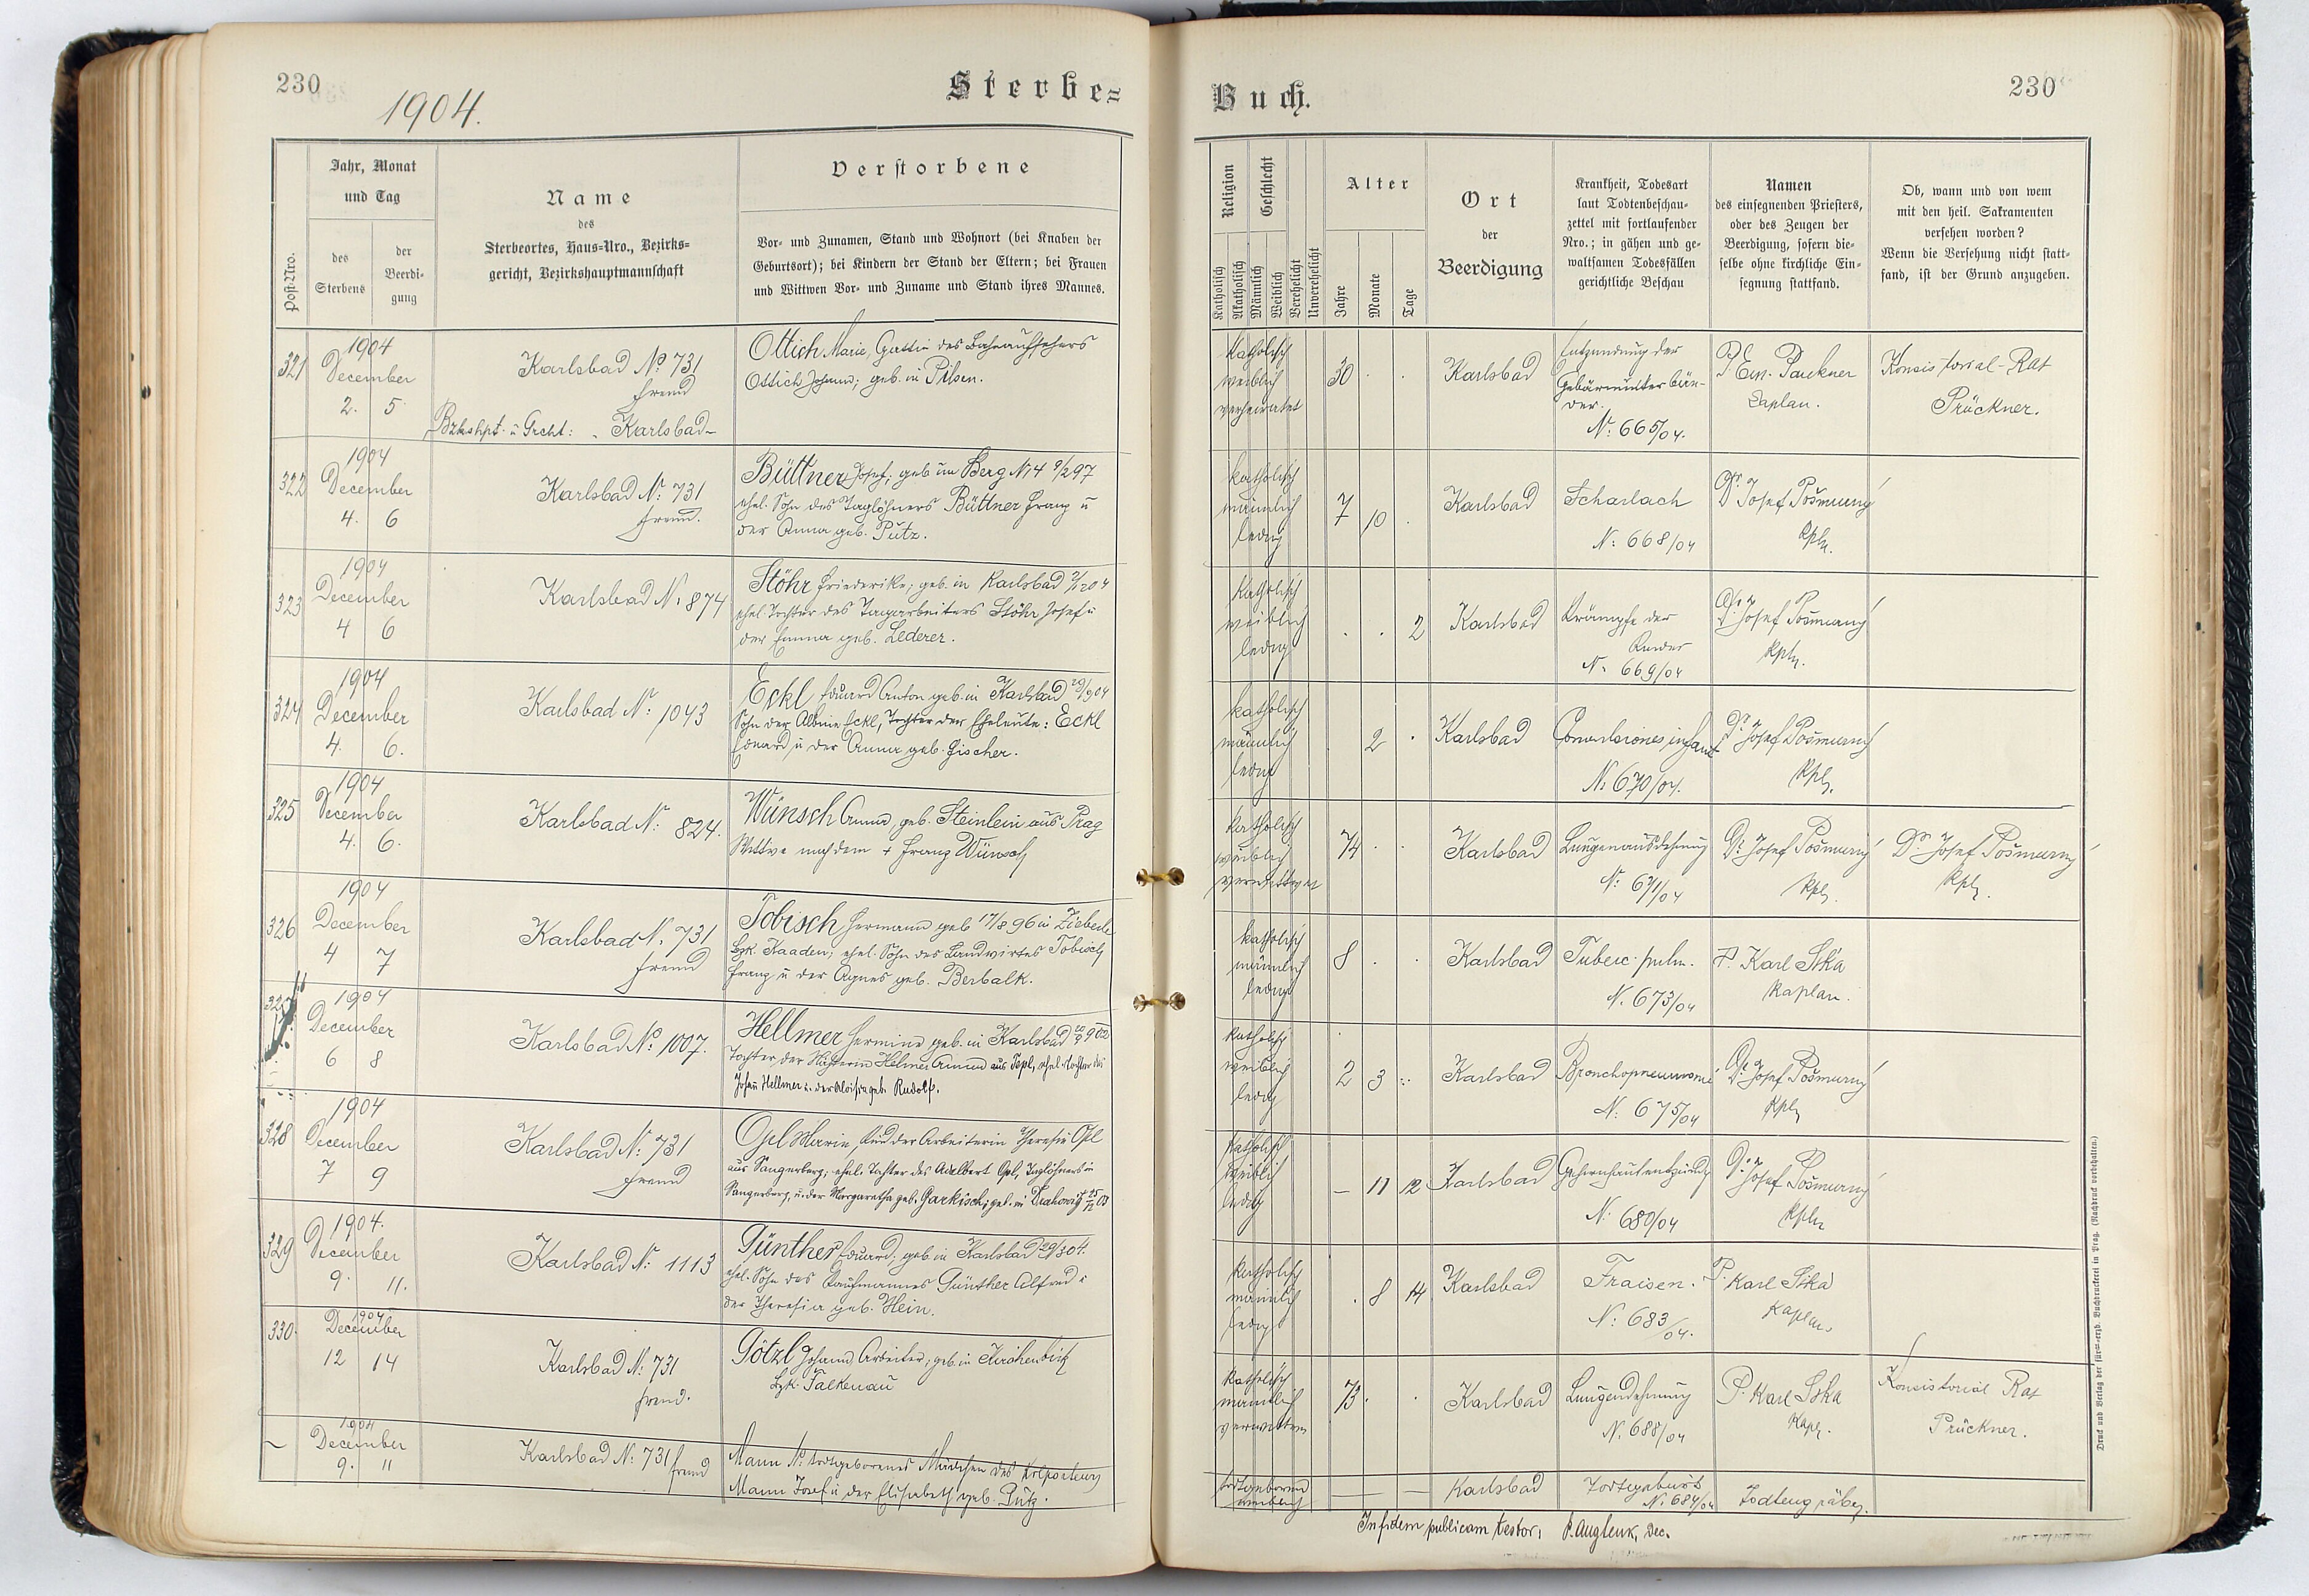 230
1904.
Sterbe=
Post-Nro.
Jahr, Monat
und Tag
des
Sterbens
der
Beerdi-
gung
Name
des
Sterbeortes, Haus-Nro., Bezirks-
gericht, Bezirkshauptmannschaft
Verstorbene
Vor- und Zunamen, Stand und Wohnort (bei Knaben der
Geburtsort); bei Kindern der Stand der Eltern; bei Frauen
und Wittwen Vor- und Zuname und Stand ihres Mannes.
321
1904
December
2. 5
Karlsbad No 731
fremd
Bzkshpt. u Grcht: Karlsbad
Ottich Marie, Gattin des Bahnaufsehers
Ottich Johann; geb. in Pilsen.
322
1904
December
4. 6
Karlsbad N: 731
fremd.
Büttner Josef; geb. in Berg N 4 9/2 97
ehel. Sohn des Taglöhners Büttner Franz u
der Anna geb. Putz.
323
1904
December
4 6
Karlsbad N: 874
Stöhr Friederike; geb. in Karlsbad 2/12 04
ehel. Tochter des Tagarbeiters Stöhr Josef u
der Emma geb. Lederer.
324
1904
December
4. 6.
Karlsbad N: 1043
Eckl Eduard Anton geb. in Karlsbad
Sohn der Albine Eckl, Tochter der Eheleute: Eckl
Eduard u der Anna geb. Fischer.
325
1904
December
4. 6.
Karlsbad N: 824.
Wünsch Anna, geb. Steinlein aus Prag
Wittwe nach dem + Franz Wünsch
326
1904
December
4 7
Karlsbad N. 731
fremd
Tobisch Hermann geb 17/8 96 in
Bzk. Kaaden; ehel. Sohn des Landwirtes Tobisch
Franz u der Agnes geb. Berbalk.
327
1904
December
6 8
Karlsbad No 1007.
Hellmer Hermine geb. in Karlsbad
Tochter der Hellmer Anna aus Tepl, ehel. Tochter des
Johann Hellmer u. der Aloisia geb. Rudolf.
328
1904
December
7 9
Karlsbad N: 731
fremd
Opl Marie, Kind der Arbeiterin Theresie Opl
aus Sangerberg; ehel. Tochter des Adalbert Opl, Taglöhners in
Sangerberg, u. der Margaretha geb. Garkisch; geb. in Drahowitz 25/12 03
329
1904.
December
9. 11.
Karlsbad N: 1113
Günther Eduard; geb. in Karlsbad 29/3 04.
ehel. Sohn des Kaufmannes Günther Alfred u
der Theresia geb. Hein.
330.
1904
December
12 14
Karlsbad N: 731
fremd.
Götzl Johann, Arbeiter; geb. in
Bzk. Falkenau
~
1904
December
9. 11
Karlsbad N: 731 fremd
Mann N: todtgeborenes Mädchen des
Mann Josef u der Elisabeth geb. Putz.
Buch.
230
Religion
Katholisch
Akatholisch
Geschlecht
Männlich
Weiblich
Verehelicht
Unverehelicht
Alter
Jahre
Monate
Tage
Ort
der
Beerdigung
Krankheit, Todesart
laut Todtenbeschau-
zettel mit fortlaufender
Nro.; in gähen und ge-
waltsamen Todesfällen
gerichtliche Beschau
Namen
des einsegnenden Priesters,
oder des Zeugen der
Beerdigung, sofern die-
selbe ohne kirchliche Ein-
segnung stattfand.
Ob, wann und von wem
mit den heil. Sakramenten
versehen worden?
Wenn die Versehung nicht statt-
fand, ist der Grund anzugeben.
katholisch
weiblich
verheiratet
30
Karlsbad
Entzündung der
Gebärmutterbän-
der.
N: 665/04.
P. Em. Paukner
Caplan.
Konsistorial-Rat
Prückner.
katholisch
männlich
ledig
7 10
Karlsbad
Scharlach
N: 668/04
Dr. Josef Pošmurný
Kpln.
katholisch
weiblich
ledig
2
Karlsbad
Krämpfe der
Kinder
N. 669/04
Dr. Josef Pošmurný
Kpln.
katholisch
männlich
ledig
2
Karlsbad
N: 670/04.
Dr. Josef Pošmurný
Kpln.
katholisch
weiblich
verwittwet
74
Karlsbad
Lungenausdehnung
N: 671/04
Dr. Josef Pošmurný
Kpln.
Dr. Josef Pošmurný
Kpln.
katholisch
männlich
ledig
8
Karlsbad
Tuberc. pulm.
N. 673/04
P. Karl Sika
Kaplan.
katholisch
weiblich
ledig
2 3
Karlsbad
Bronchopneumonie
N: 675/04
Dr. Josef Pošmurný
Kpln
katholisch
weiblich
ledig
— 11 12
Karlsbad
Gehirnhautentzündg
N: 680/04
Dr. Josef Pošmurný
Kpln
katholisch
männlich
ledig
8 14
Karlsbad
Fraisen.
N: 683/04.
P. Karl Sika
Kaplan
katholisch
männlich
verwittwet
73
Karlsbad
Lungendehnung
N. 688/04
P. Karl Sika
Kapl.
Konsistorial Rat
Prückner.
todtgeboren
weiblich
— — —
Karlsbad
Todtgeburt
N. 684/04
Todtengräber.
In fidem publicam testor:
Dec.
Druck und Verlag der fürst-erzb. Buchdruckerei in Prag. (Nachdruck vorbehalten.)